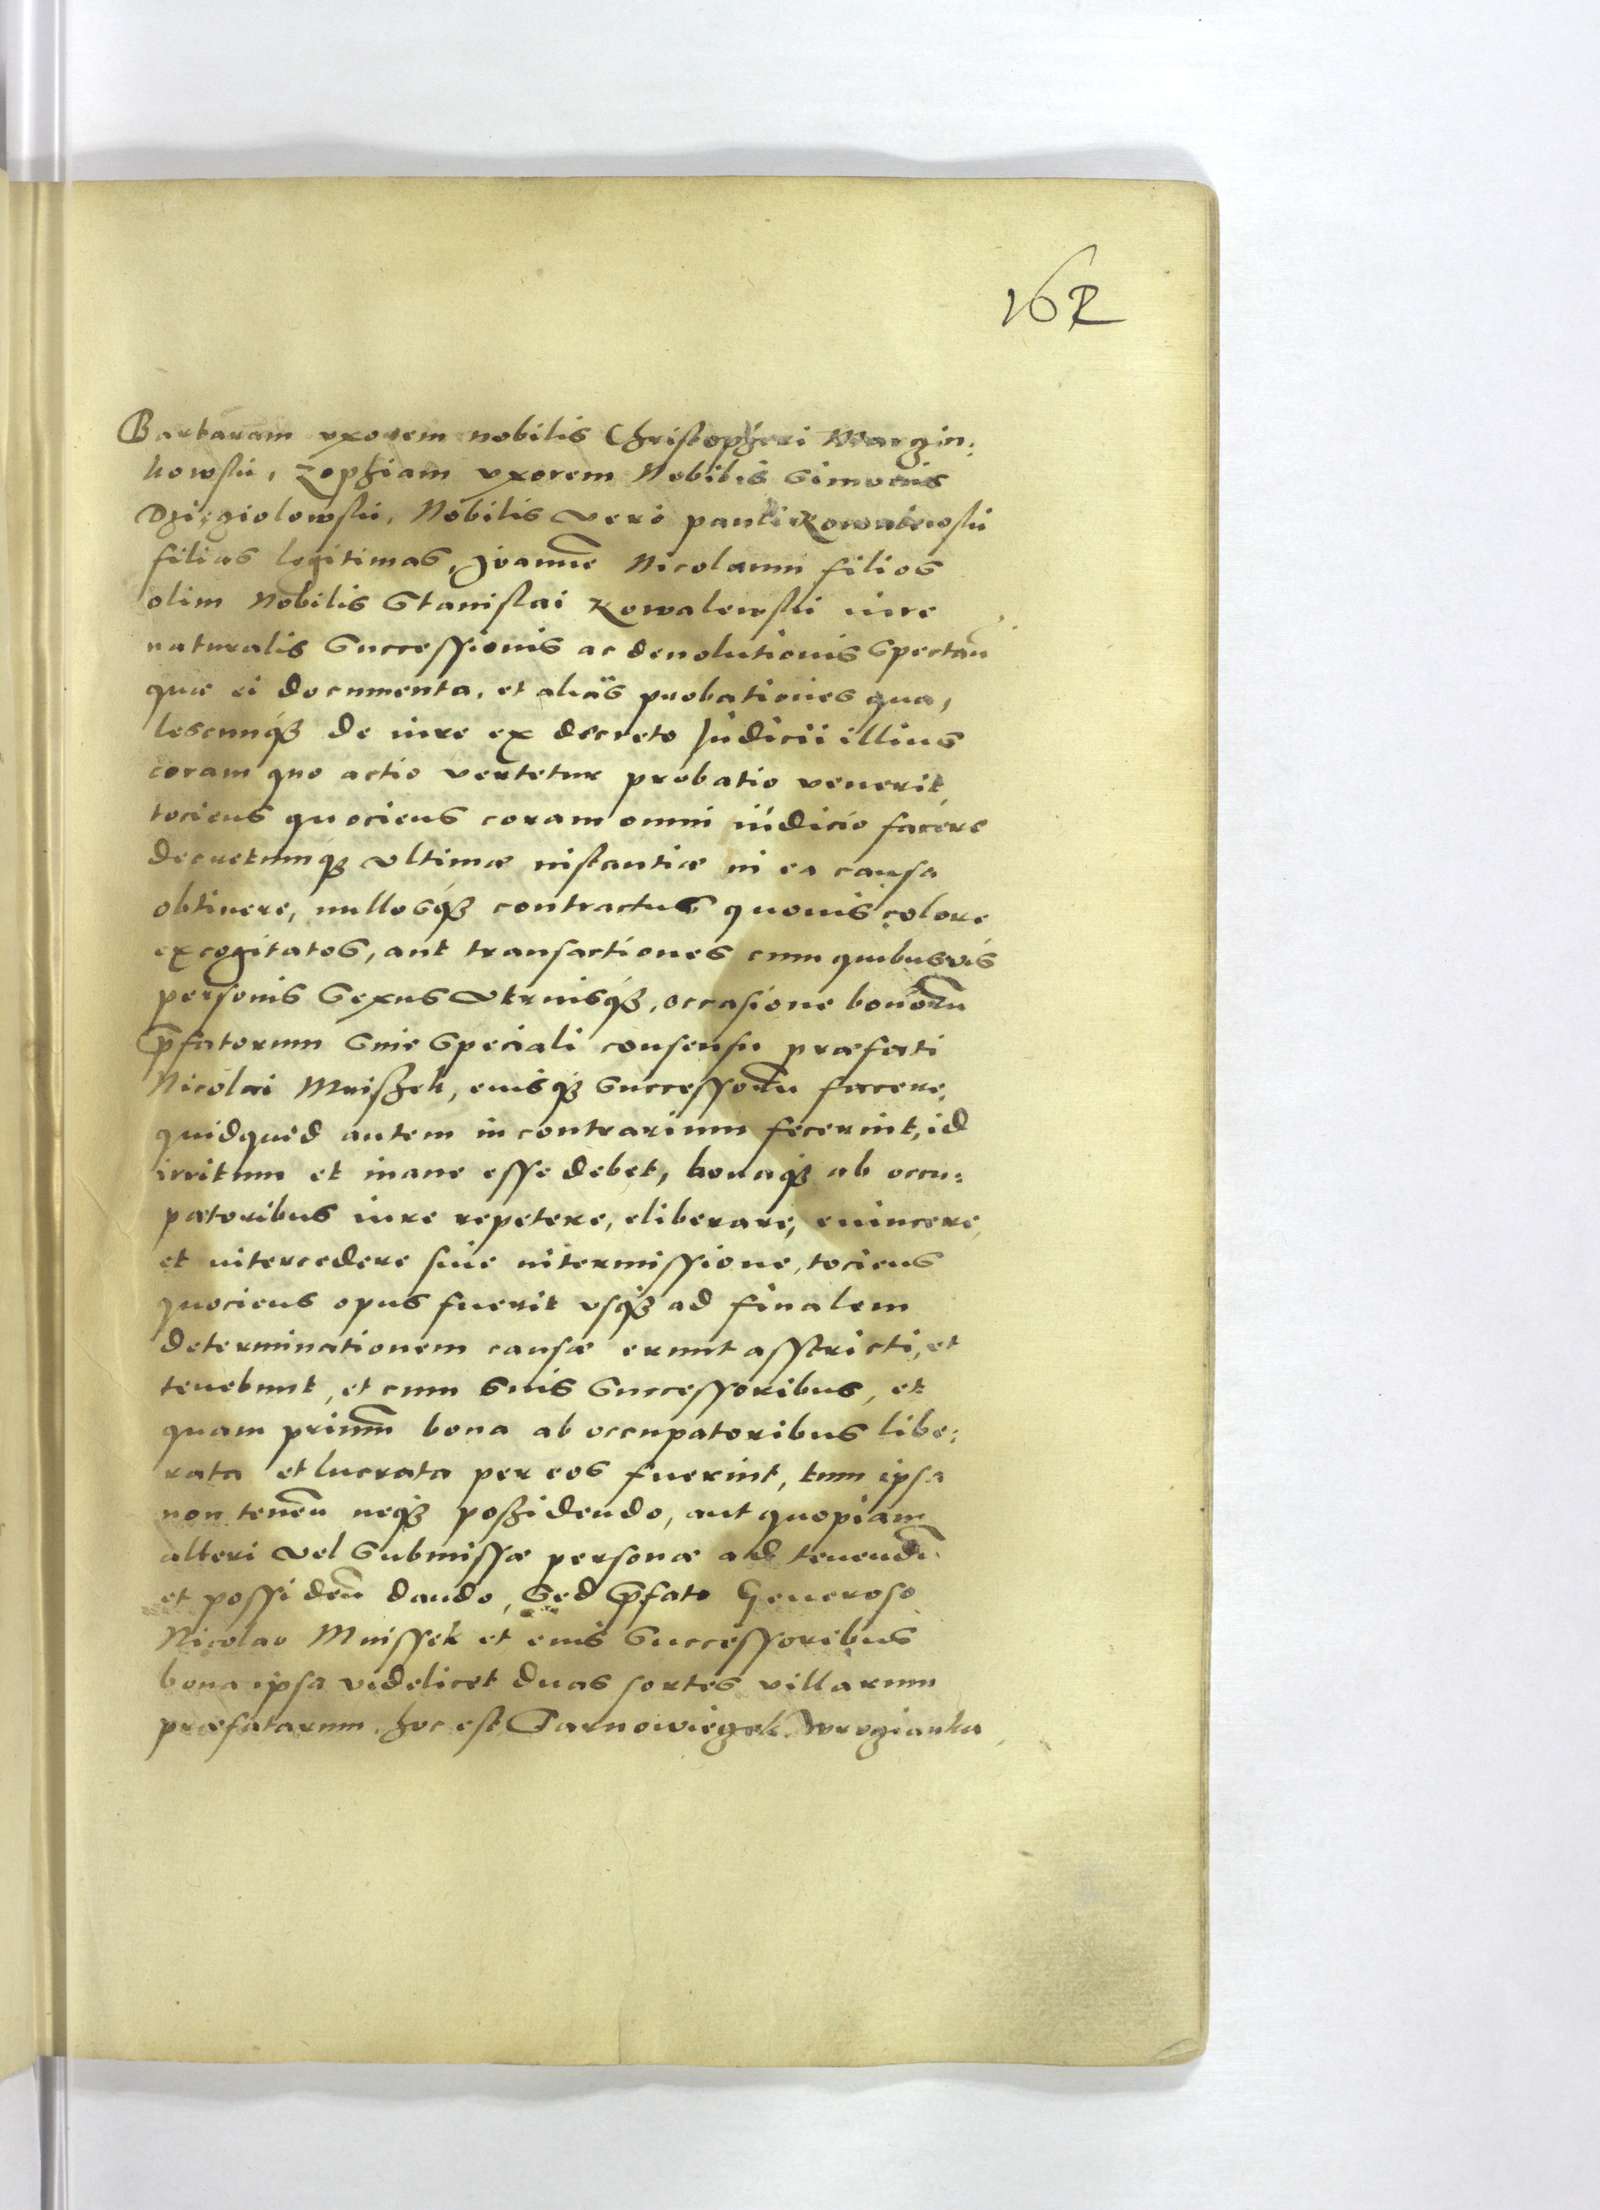 162
Barbaram uxorem nobilis Christopheri Marczin:
kowskii, Zophiam uxorem Nobilis Simonis
Dzięgiolowskii, Nobilis vero pauli Kowalewskii
filias legitimas, Joannē Nicolaum filios
olim Nobilis Stanislai Kowalewskii iure
naturalis Successionis ac devolutionis Spectan̄
quæ ei documenta, et alias probationes qua,
lescunq̨ de iure ex decreto Judicii illius
coram quo actio vertetur probatio venerit,
tociens quociens coram omni iudicio facere
decretumq̨ ultimæ instantiæ in ea causa
obtinere, nullosq̨ contractus quovis colore
excogitatos, aut transactiones cum quibusvis
personis Sexus Utriusq̨, occasione bonorū
p̄fatorum Sine Speciali consensu præfati
Nicolai Mniszek, eiusq̨ Successorū facere,
quidquid autem in contrarium fecerint, id
irritum et inane esse debet, bonaq̨ ab occu:
patoribus iure repetere, eliberare, evincere,
et intercedere sine intermissione, tociens
quociens opus fuerit usq̨ ad finalem
determinationem causæ erunt asstricti, et
tenebunt, et cum Suis Successoribus, et
quam primūm bona ab occupatoribus libe:
rata et lucrata per eos fuerint, tum ipsa
non tenen̄ neq̨ poszidendo, aut quopiam
alteri vel Submissæ personæ ad tenendū
et possiden̄ dando, Sed p̄fato Generoso
Nicolao Mnissek et eius Successoribus
bona ipsa videlicet duas sortes villarum
præfatarum, hoc est, Tarnowiegek